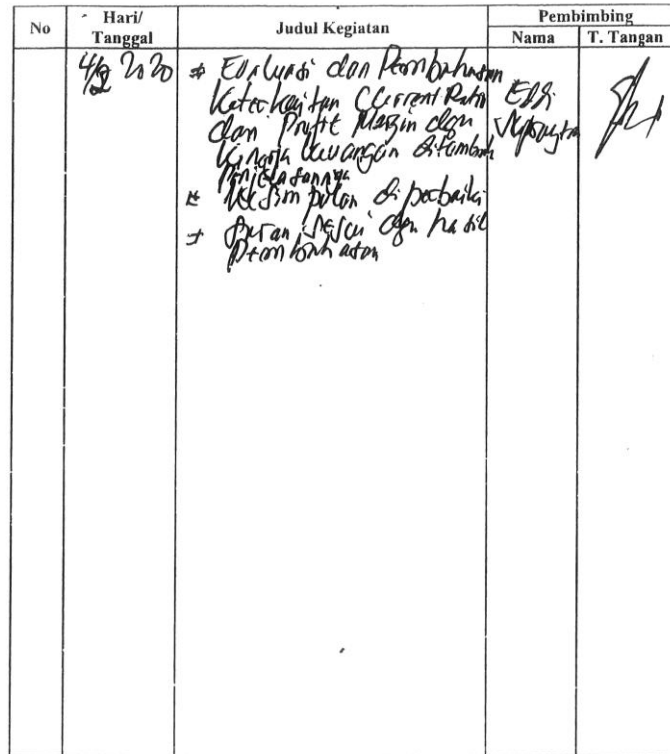 No
Hari/
Tanggal
Judul Kegiatan
Pembimbing
Nama
T. Tangan
4/2 2020
* Evaluasi dan Pembahasan
Keterkaitan Current Ratio
dan Profit Margin dgn
Kinerja Keuangan ditambah
Penjelasannya
* Kesimpulan diperbaiki
* Saran sesuai dgn hasil
Pembahasan